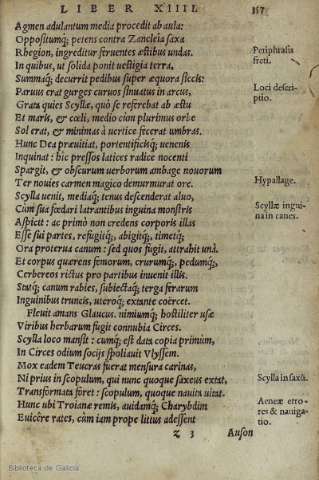 LIBER XIIII. 357
Agmen adulantum media procedit ab aula:
Oppositumq; petens contra Zancleia saxa
Rhegion, ingreditur feruentes æstibus undas.
Periphrasis freti.
In quibus, ut solida ponit uestigia terra,
Summaq; decurrit pedibus super æquora siccis:
Paruus erat gurges curuos sinuatus in arcus,
Loci descriptio.
Grata quies Scyllæ, quò se referebat ab æstu
Et maris, & cœli, medio cùm plurimus orbe
Sol erat, & minimas à uertice fecerat umbras.
Hunc Dea præuitiat, portentificisq; uenenis
Inquinat: hic pressos latices radice nocenti
Spargit, & obscurum uerborum ambage nouorum
Ter nouies carmen magico demurmurat ore.
Hypallage.
Scylla uenit, mediaq; tenus descenderat aluo,
Cùm sua fœdari latrantibus inguina monstris
Scyllæ inguina in canes.
Aspicit: ac primò non credens corporis illas
Esse sui partes, refugitq;, abigitq;, timetq;
Ora proterua canum: sed quos fugit, attrahit unà.
Et corpus quærens femorum, crurumq;, pedumq;,
Cerbereos rictus pro partibus inuenit illis.
Statq; canum rabies, subiectaq; terga ferarum
Inguinibus truncis, uteroq; extante coërcet.
Fleuit amans Glaucus. nimiumq; hostiliter usæ
Viribus herbarum fugit connubia Circes.
Scylla loco mansit: cumq; est data copia primùm,
In Circes odium socijs spoliauit Vlyssem.
Mox eadem Teucras fuerat mersura carinas,
Ni prius in scopulum, qui nunc quoque saxeus extat,
Scylla in saxũ.
Transformata foret: scopulum, quoque nauita uitat.
Hunc ubi Troianæ remis, auidamq; Charybdin
Aeneæ errores & nauigatio.
Euicêre rates, cùm iam prope littus adessent
Z 3 Auson
Biblioteca de Galicia